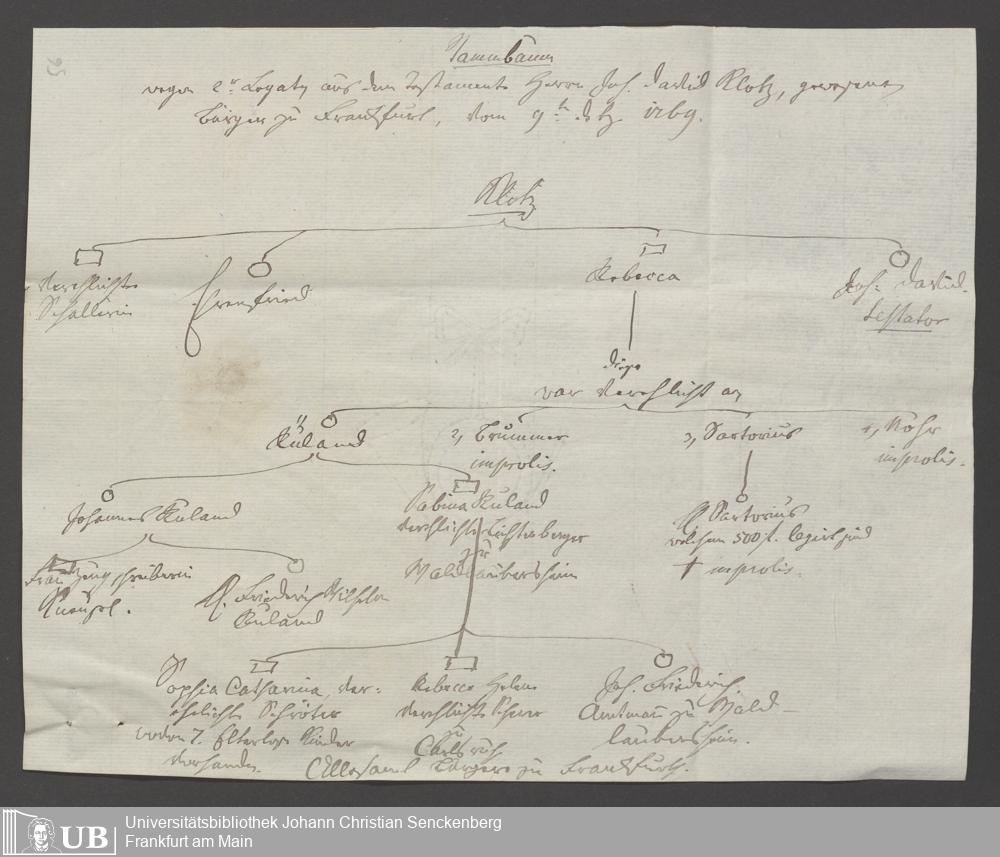 Stammbaum
wegen 2er Legaten aus dem Testamente Herrn Joh. David Klotz, gewesenen
Bürger zu Frankfurt, vom 9t 1769.
Klotz
verehlichte
Schallerin
Ehrenfried
Rebecca
Joh: David.
testator
diese
war verehlicht an
Ruland
2, Brummer
improlis.
3, Sartorius
4, Rohr
improlis.
Johannes Ruland
Sabina Ruland
verehlichte Lichtenberger
zu
Waldlaubersheim
Sartorius
welchem 500 f. legirt sind
† improlis.
Frau Zeugschreiberin
H. Friederich Wilhelm
Ruland
Sophia Catharina, ver=
ehelichte Schröter
wovon 7. Elterlose Kinder
vorhanden.
Rebecca Helena
verehlichte
zu
Carlsruh
Joh. Friederich.
Amtmann zu Wald-
laubersheim.
Allesamt Bürgere zu Frankfurth.
UB
Universitätsbibliothek Johann Christian Senckenberg
Frankfurt am Main